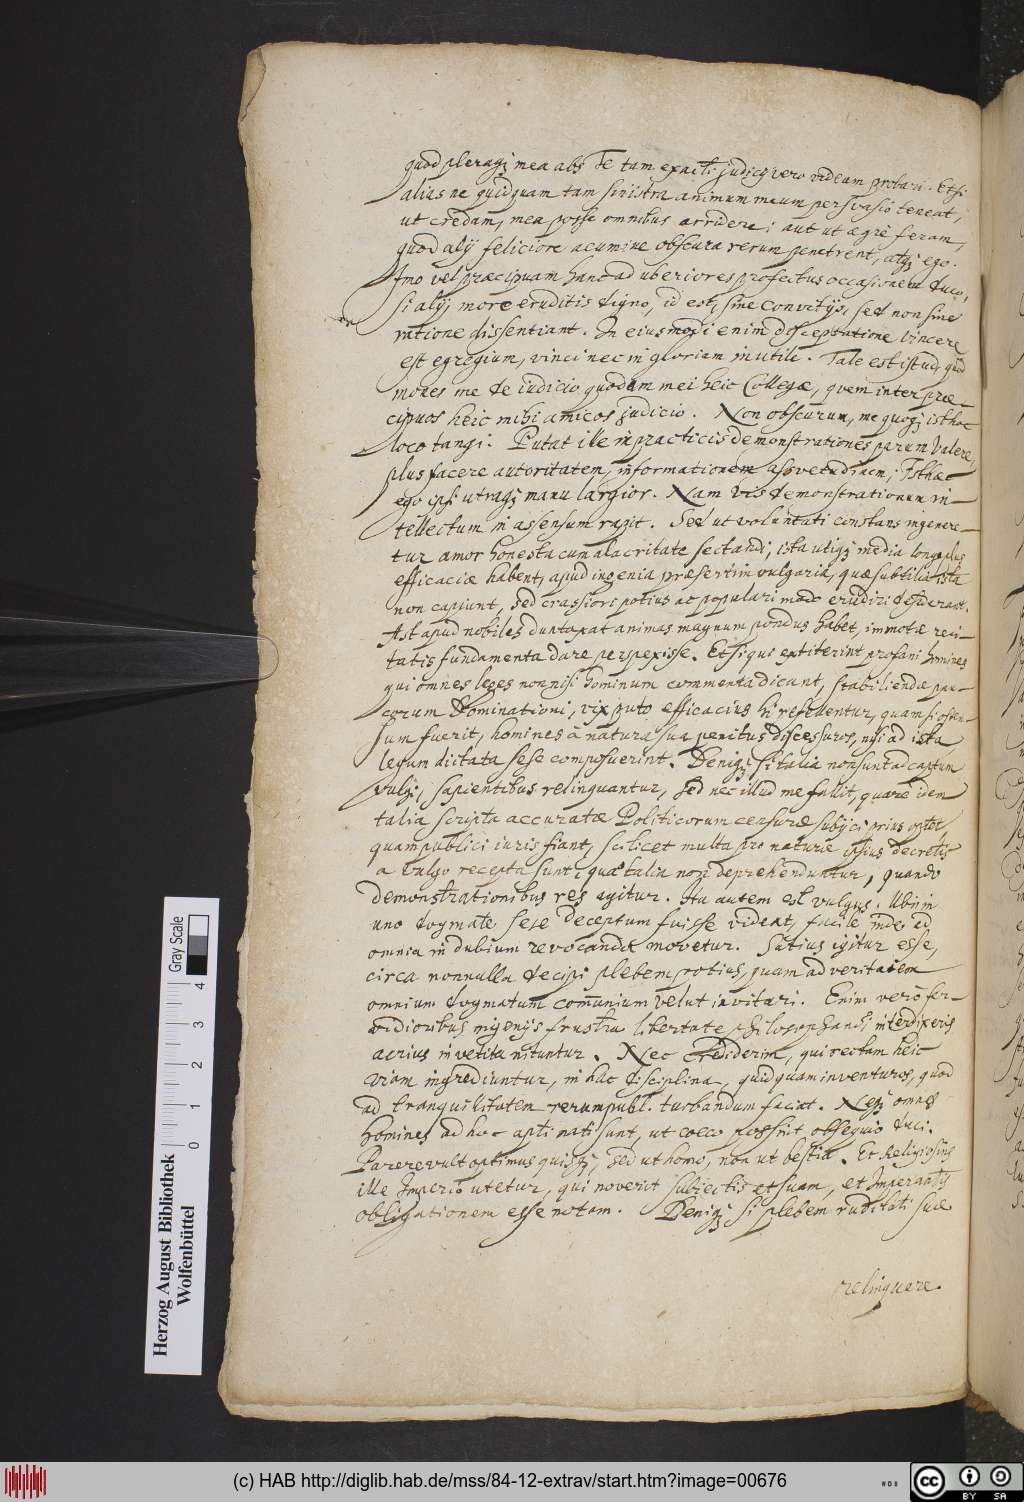 quod pleraq; mea abs Te tam exacti judicij viro videam probari. Etsi
alias ne quidquam tam sinistra animum meum persvasio teneat,
ut credam, mea posse omnibus arridere; aut ut aegrè feram,
quod alij feliciore acumine obscura rerum penetrent, atq; ego.
Imo vel praecipuam hanc ad uberiores profectus occasionem duco,
si alij more eruditis digno, id est, sine convitijs, sed non sine
ratione dissentiant. In eiusmodi enim disceptatione vincere
est egregium, vinci nec inglorium inutile. Tale est istud, quod
mones me de iudicio quodam mei heic Collegae, quem inter prae-
cipuos heic mihi amicos judicio. Non obscurum, me quoq; isthoc
loco tangi. Putat ille in practicis demonstrationes parum valere,
plus facere autoritatem, informationem assvetudinem; Isthaec
ego ipsi utraq; manu largior. Nam vis demonstrationum in-
tellectum in assensum rapit. Sed ut voluntati constans ingenere-
tur amor honesta cum alacritate sectandi, ista utiq; media longe plus
efficaciae habent, apud ingenia praesertim vulgaria, quae subtilia ista
non capiunt, sed crassiori potius ac populari modo erudiri desiderant.
Ast apud nobiles duntaxat animas magnum pondus habet, immotae veri-
tatis fundamenta dare perspexisse. Et si qui extiterint profani homines
qui omnes leges non nisi hominum commenta dicant, stabiliendae pau-
corum Dominationi, vix puto efficacius hi refellentur, quam si osten-
sum fuerit, homines à natura sua penitus discessuros, nisi ad ista
legum dictata sese composuerint. Deniq; si talia non sunt ad captum
vulgi, sapientibus relinquantur, sed nec illud me fallit, quare idem
talia scripta accuratae Politicorum censurae subijci prius optet,
quam publici iuris fiant, scilicet multa pro naturae ipsius decretis
a vulgo recepta sunt, quae talia non deprehenduntur, quando
demonstrationibus res agitur. Ita autem est vulgus. Ubi in
uno dogmate sese deceptum fuisse videat, facile inde ad
omnia in dubium revocanda movetur. Satius igitur esse,
circa nonnulla decipi plebem potius, quam ad veritatem
omnium dogmatum communium velut invitari. Enim verò fer-
vidioribus ingenijs frustra libertate philosophandi interdixeris
acrius in vetita nituntur. Nec crediderim, qui rectam heic
viam ingrediuntur, in hac disciplina, quidquam inventuros, quod
ad tranquillitatem rerumpubl. turbandum faciat. Neq; omnes
homines ad hoc apti nati sunt, ut coeco possint obsequio duci.
Parere vult optimus quisq;, sed ut homo, non ut bestia. Et Religiosius
ille Imperio utetur, qui noverit subiectis et suam, et Imperantis
obligationem esse notam. Deniq; si plebem ruditati suae
relinquere
Herzog August Bibliothek
Wolfenbüttel
0 1 2 3 4
Gray Scale
(c) HAB http://diglib.hab.de/mss/84-12-extrav/start.htm?image=00676
cc BY SA